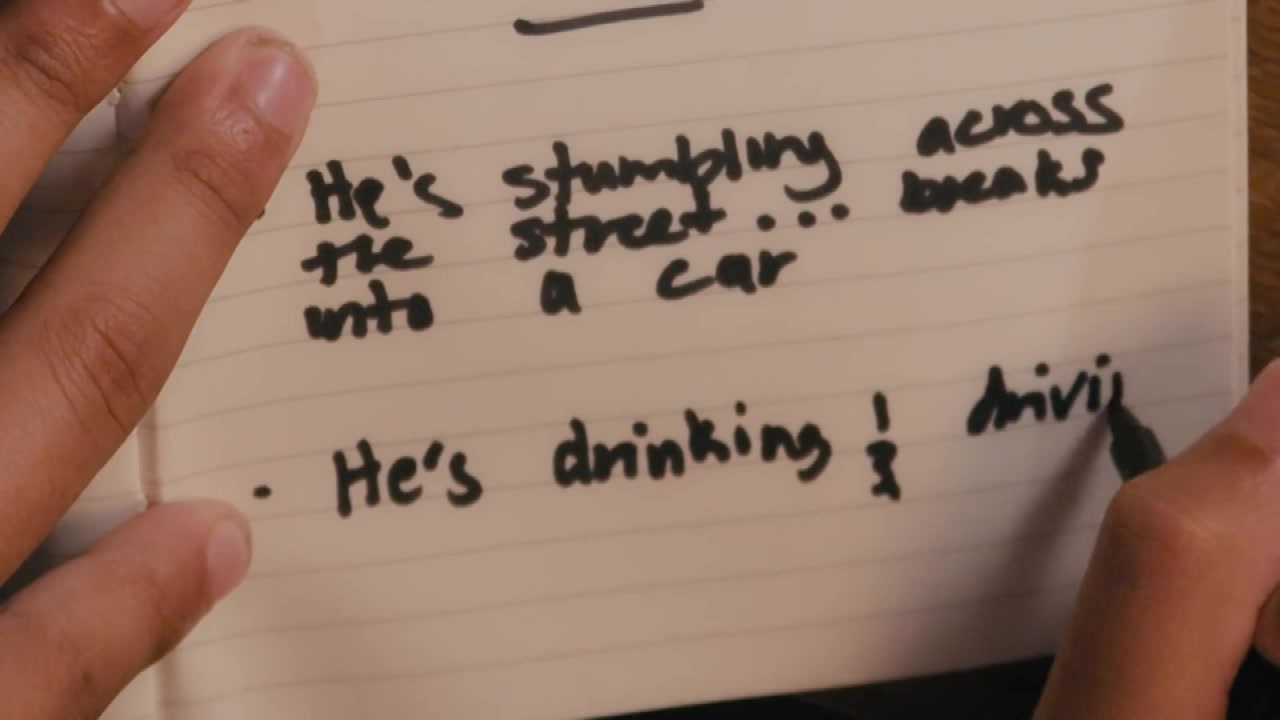 He's stumbling across
the street... breaks
into a car
· He's drinking & drivi